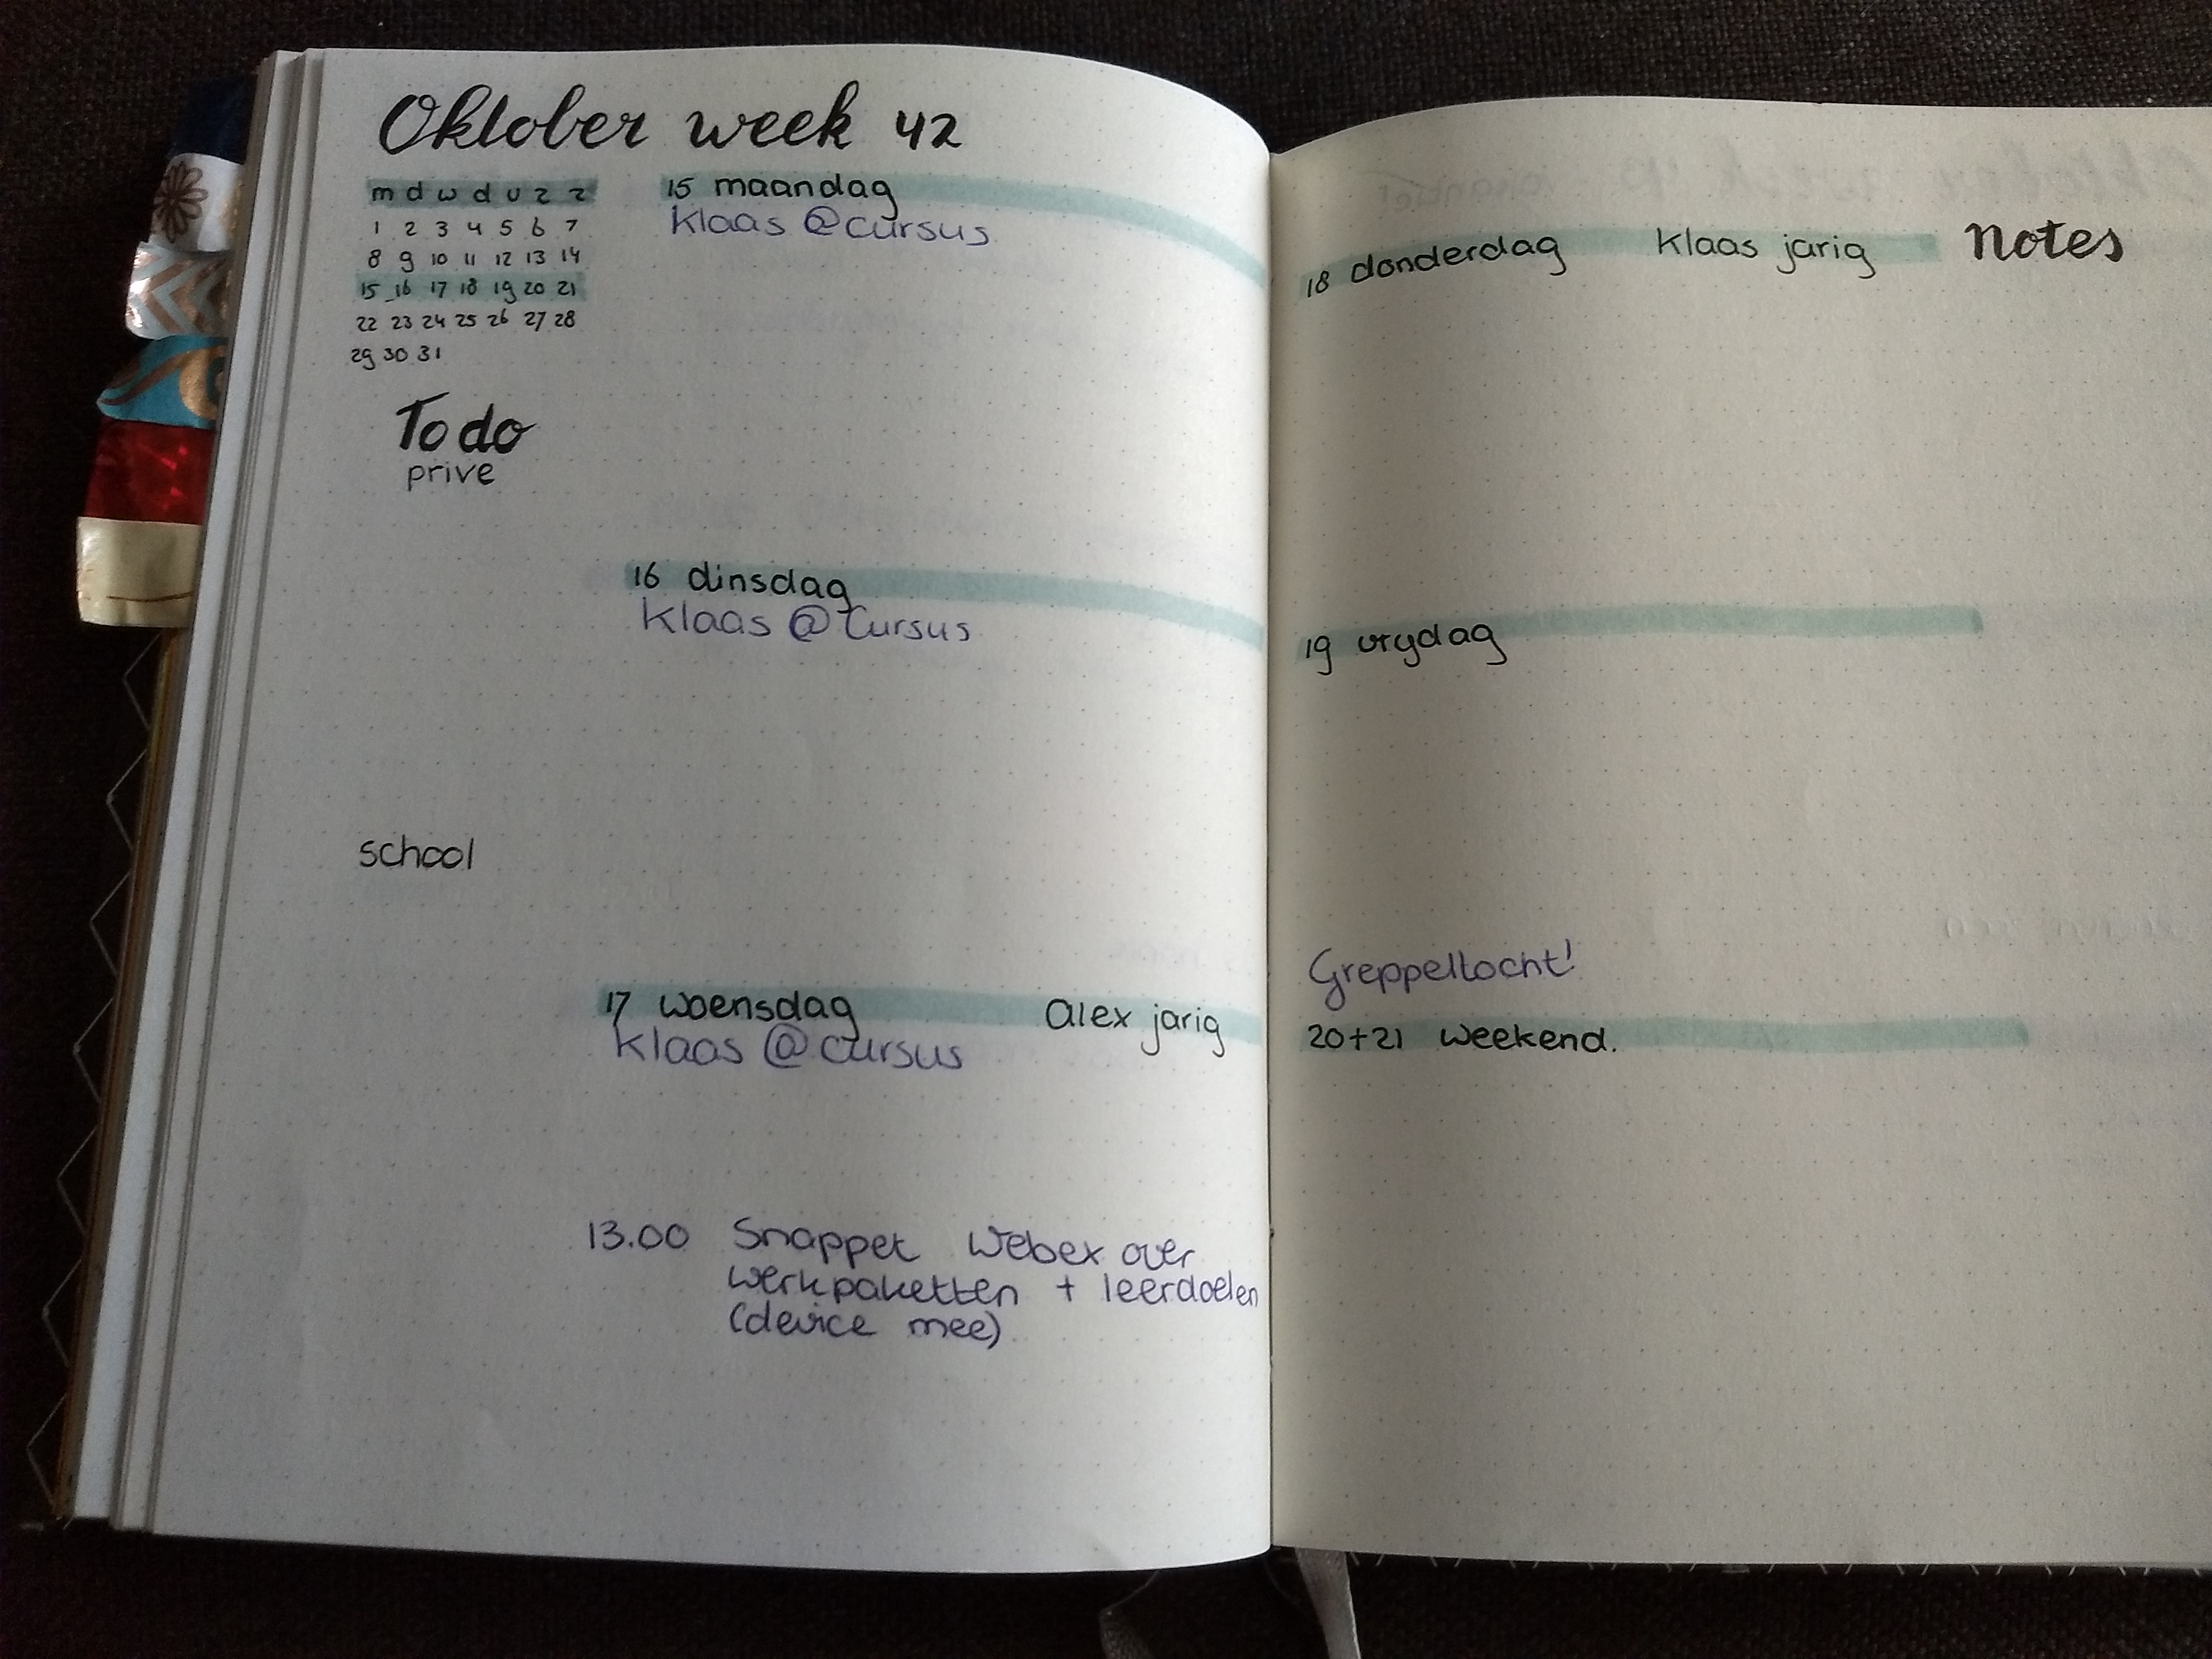 Oktober week 42
m d w d v z z
1 2 3 4 5 6 7
8 9 10 11 12 13 14
15 16 17 18 19 20 21
22 23 24 25 26 27 28
29 30 31
To do
prive
school
15 maandag
Klaas @cursus
16 dinsdag
Klaas @ Cursus
17 woensdag Alex jarig
Klaas @ cursus
13.00 Snappet Webex over
werkpaketten + leerdoelen
(device mee)
18 donderdag Klaas jarig
19 vrijdag
Greppeltocht!
20+21 weekend.
Notes